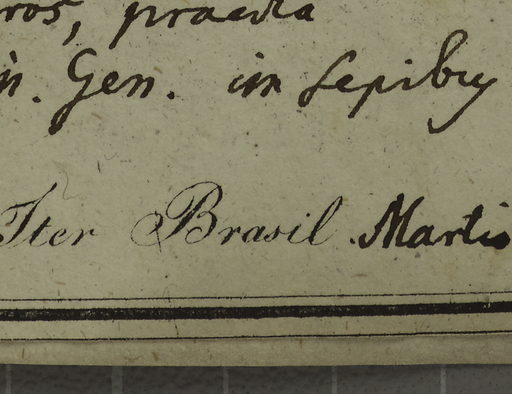 ros, praedia
in. Gen. in sepibus
Iter Brasil. Martio